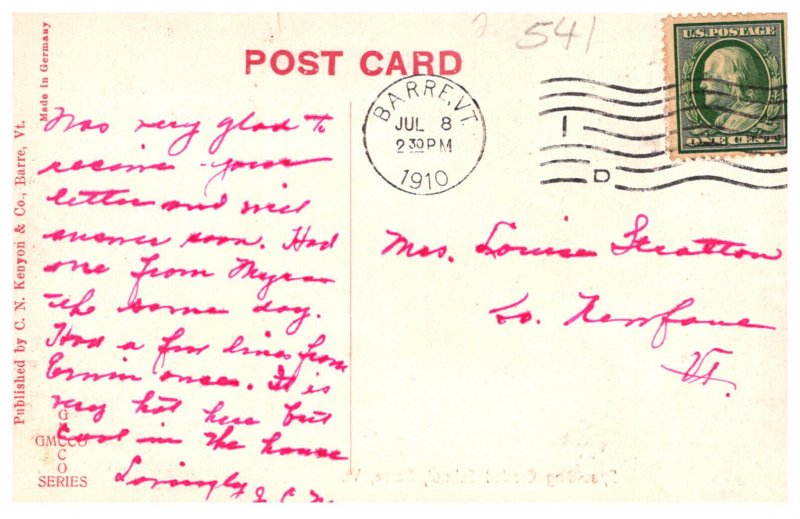 541
POST CARD
Made in Germany
Published by C. N. Kenyon & Co., Barre, Vt.
BARRE, VT.
JUL 8
2 30 PM
1910
1
D
U.S. POSTAGE
ONE CENT
Was very glad to
receive your
letter and will
answer soon. Had
one from Myra
the same day.
Had a few lines from
Erwin once. It is
very hot here but
Cool in the house
Lovingly
Mrs. Louise Stratton
So. Newfane
Vt.
GMCCO
SERIES